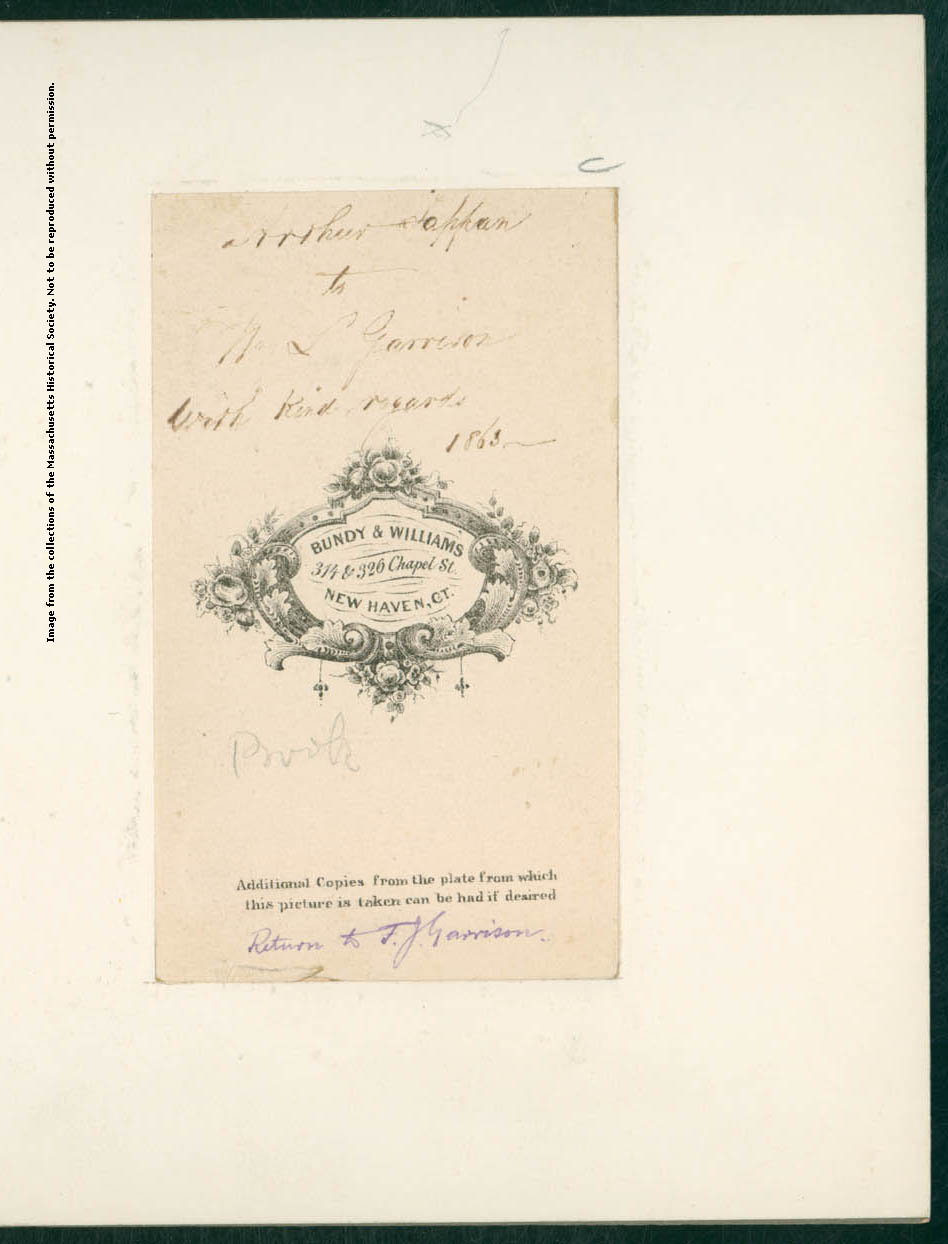 Image from the collections of the Massachusetts Historical Society. Not to be reproduced without permission.
Arthur Tappan
to
Wm L Garrison
With Kind regards
1863
BUNDY & WILLIAMS
314 & 326 Chapel St.
NEW HAVEN, CT.
Additional Copies from the plate from which
this picture is taken can be had if desired
Return to F. J. Garrison.